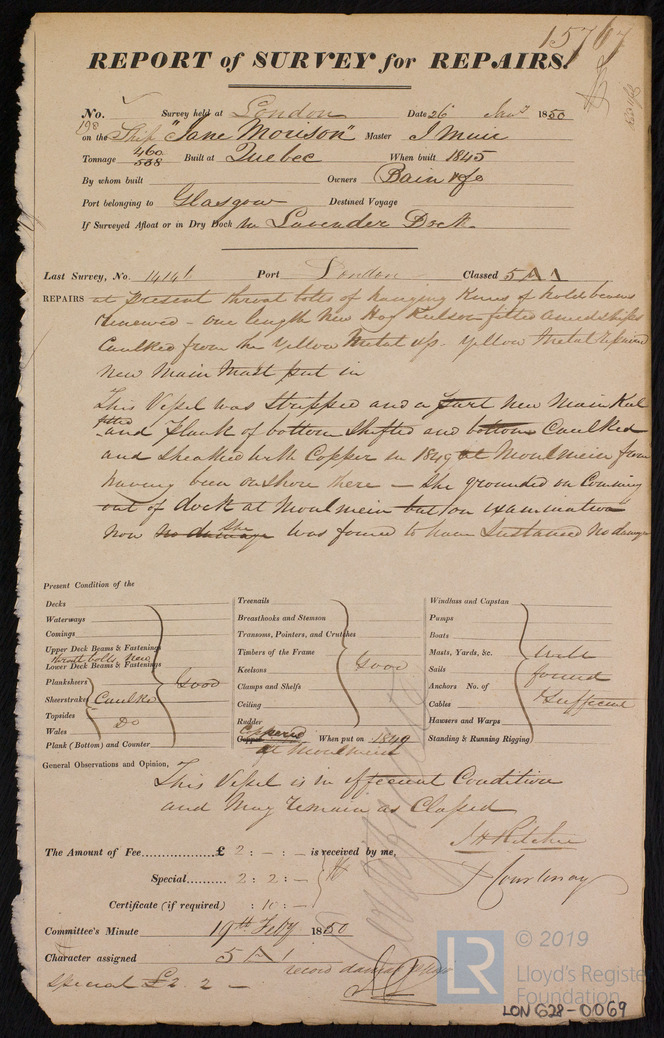 15767
REPORT of SURVEY for REPAIRS.
No. 198 Survey held at London Date 26 Jany 1850
on the Ship "Jane Morison" Master J Muir
Tonnage 460 538 Built at Quebec When built 1845
By whom built Owners Bain & Co
Port belonging to Glasgow Destined Voyage
If Surveyed Afloat or in Dry Dock In Lavender Dock.
Last Survey, No. 14146 Port London Classed 5 A 1
REPAIRS at Present throat bolts of hanging Knees of hold beams
renewed - one length New Hog Keelson fitted amidships
Caulked from the Yellow Metal up. Yellow Metal repaired
New Main Mast put in
This Vessel was Stripped and a part New Main Keel
fitted
and Plank of bottom Shifted and bottom Caulked
and Sheathed with Copper in 1849 at Moulmein from
having been on Shore here - She grounded on Coming
out of dock at Moulmein but on examination
she
now no damage was found to have Sustained No damage
Present Condition of the
Decks
Waterways
Comings
Upper Deck Beams & Fastenings
throat bolts New
Lower Deck Beams & Fastenings
Planksheers Good
Sheerstrakes Caulked
Topsides
Wales Do
Plank (Bottom) and Counter
Treenails
Breasthooks and Stemson
Transoms, Pointers, and Crutches
Timbers of the Frame
Keelsons Good
Clamps and Shelfs
Ceiling
Rudder
Coppered
Copper When put on 1849
at Moulmein
Windlass and Capstan
Pumps
Boats
Masts, Yards, &c. Well
Sails found
Anchors No. of
Cables & Sufficient
Hawsers and Warps
Standing & Running Rigging
General Observations and Opinion,
This Vessel is in efficient Condition
and May remain as Classed
J H Pitcher
J Courtenay
The Amount of Fee £ 2 : - : - is received by me,
Special 2 : 2 : -
Certificate (if required) : 10 : -
Committee's Minute 19th Feby 1850
Character assigned 5 A 1
record damage
Special £2 2 -
LR
© 2019
Lloyd's Register
Foundation
LON 628-0069